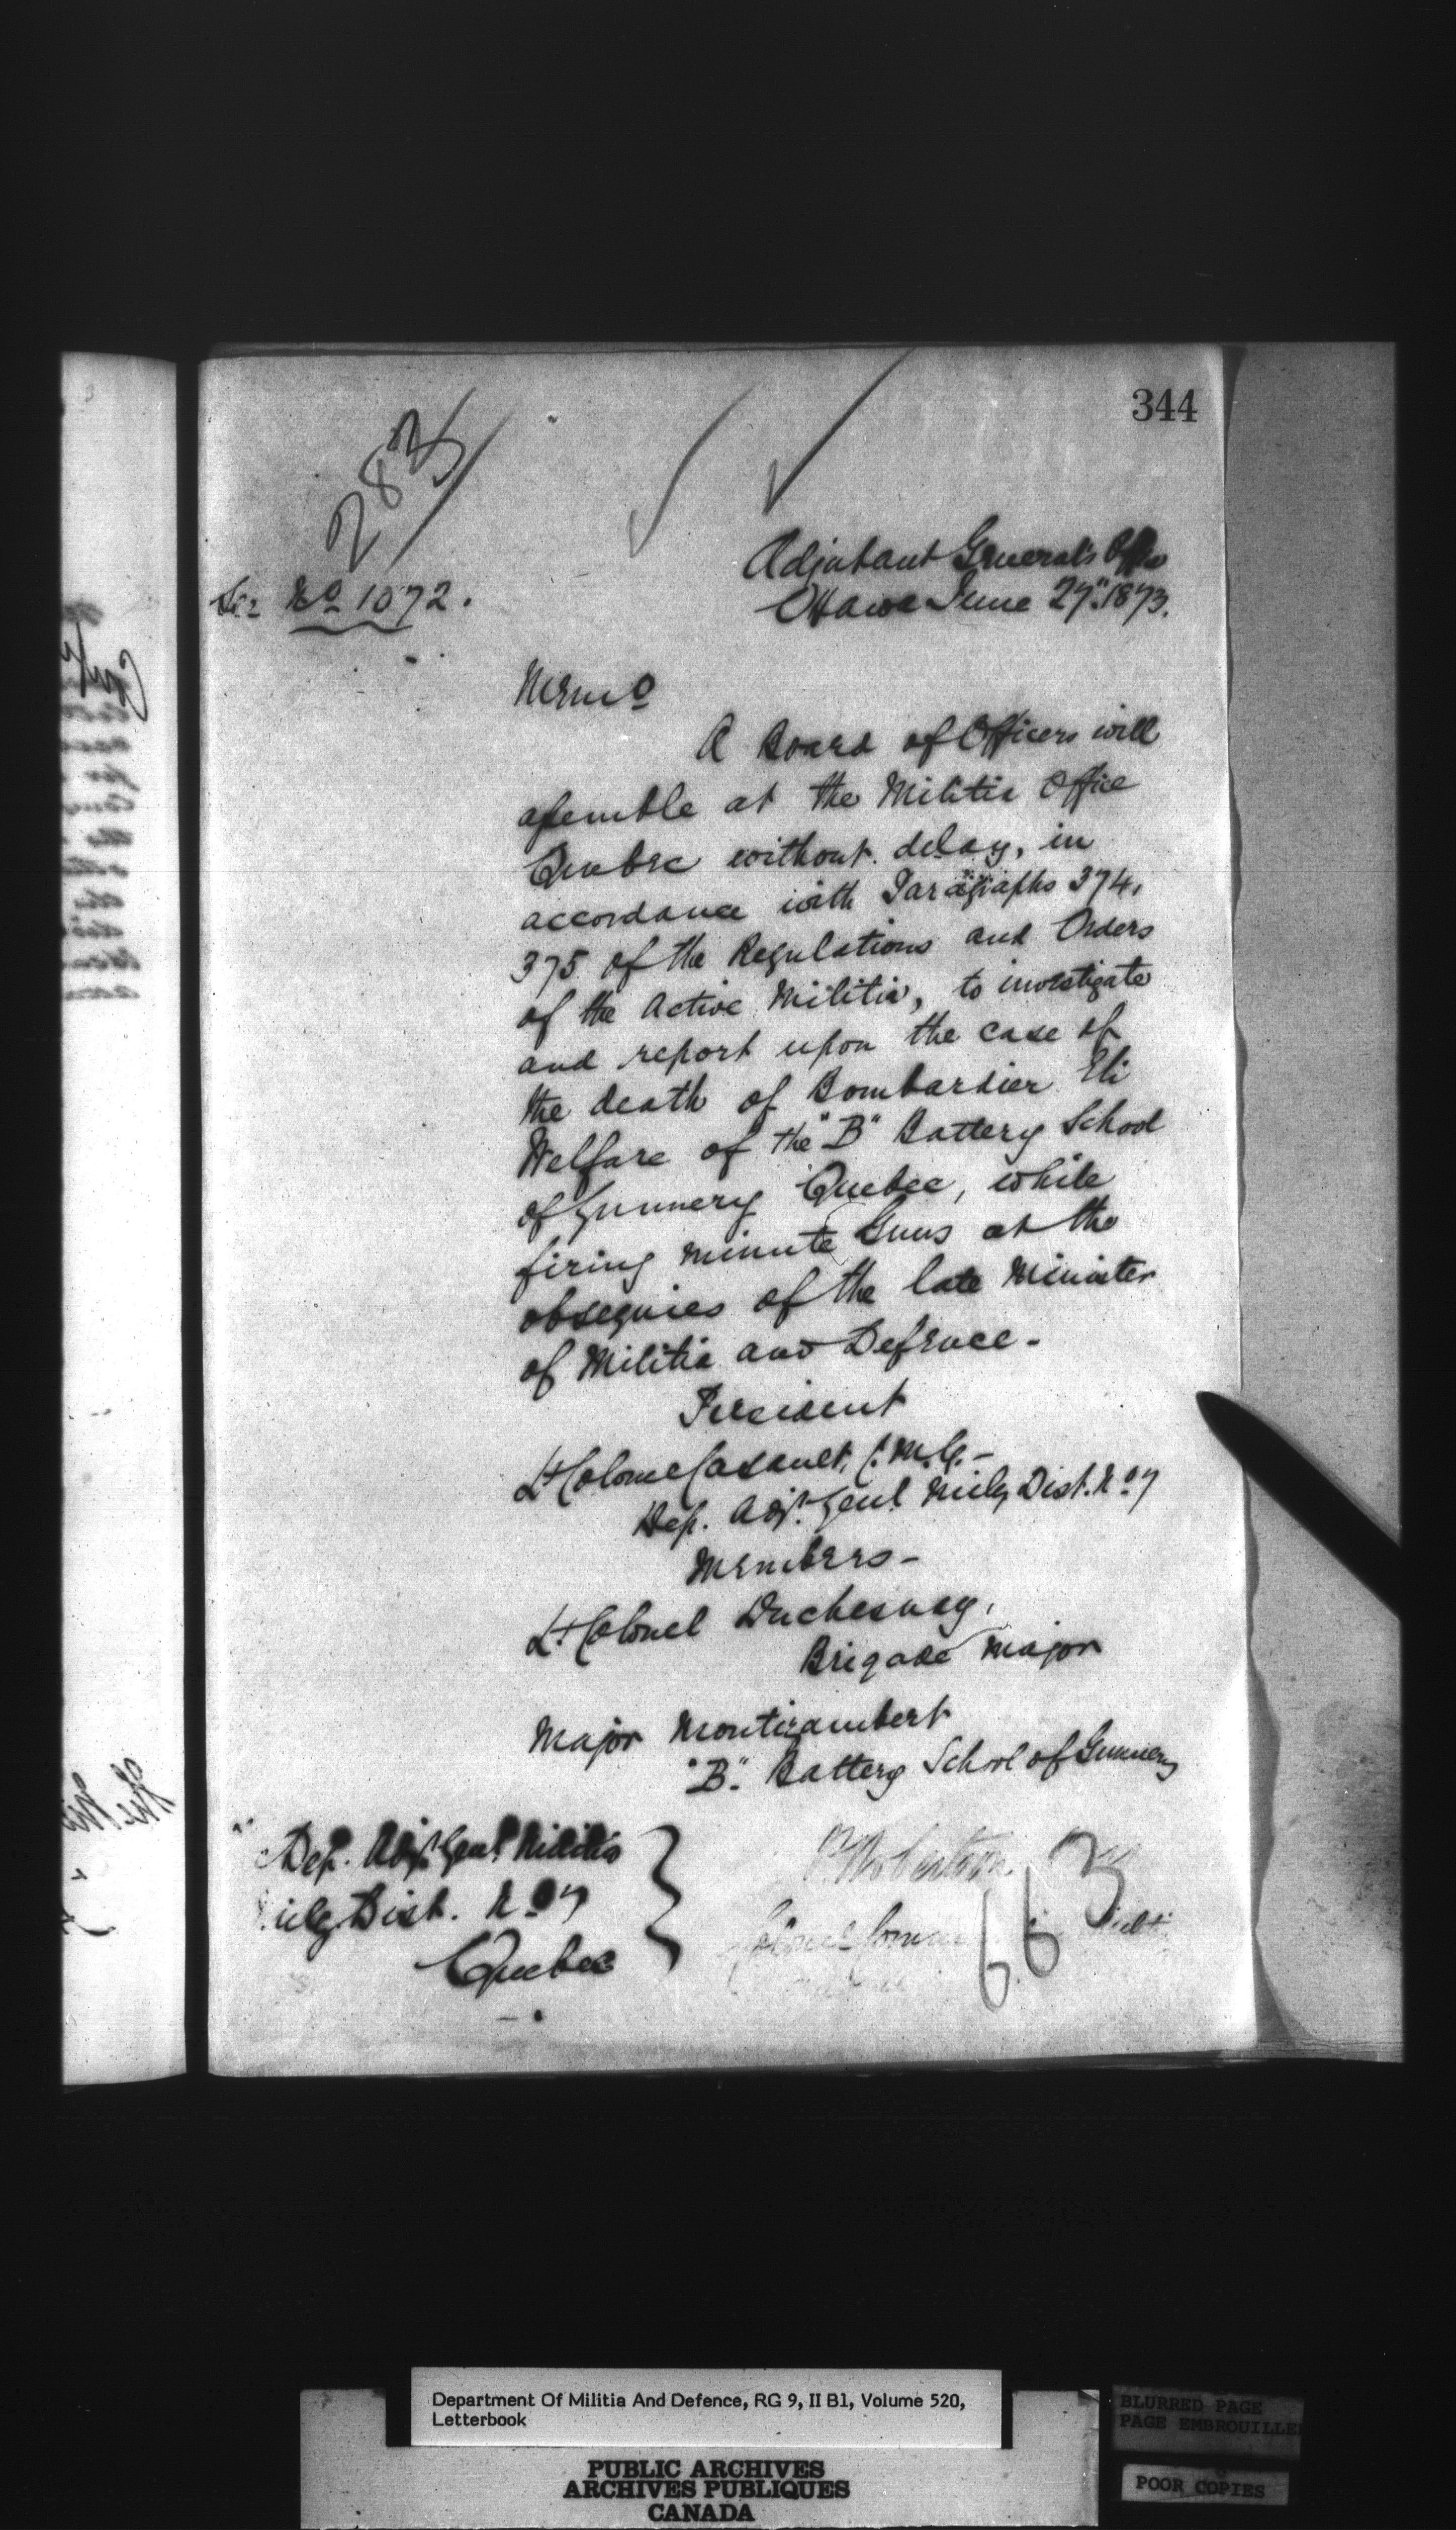 344
283
No 1072.
Adjutant General's Office
Ottawa June 27th 1873.
Memo
A Board of Officers will
assemble at the Militia Office
Quebec without delay, in
accordance with Paragraphs 374,
375 of the Regulations and Orders
of the Active Militia, to investigate
and report upon the case of
the death of Bombardier Eli
Welfare of the "B" Battery School
of Gunnery Quebec, while
firing minute Guns at the
obsequies of the late Minister
of Militia and Defence.
President
Lt Colonel Casault, C.M.G.
Dep. Adjt. Genl Mily Dist. No 7
Members
Lt Colonel Duchesnay,
Brigade Major
Major Montizambert
"B" Battery School of Gunnery
Dep. Adjt. Genl Militia
Dist. No 7
Quebec
663
Department Of Militia And Defence, RG 9, II B1, Volume 520,
Letterbook
PUBLIC ARCHIVES
ARCHIVES PUBLIQUES
CANADA
BLURRED PAGE
PAGE EMBROUILLE
POOR COPIES